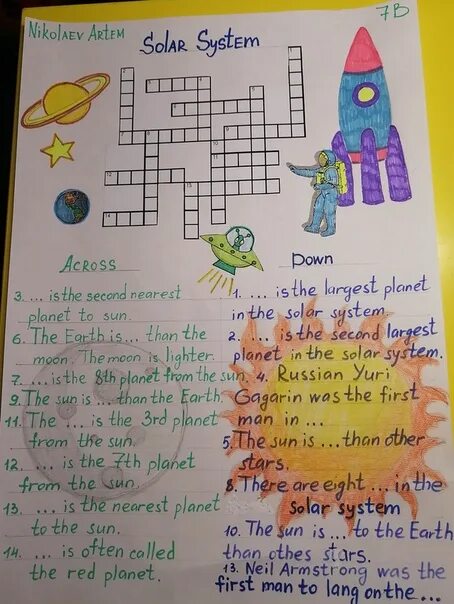 7B
Nikolaev Artem
Solar System
Across
3. ... is the second nearest
planet to sun.
6. The Earth is... than the
moon. The moon is lighter.
7. ... is the 8th planet from the sun.
9. The sun is ... than the Earth
11. The ... is the 3rd planet
from the sun.
12. ... is the 7th planet
from the sun.
13. ... is the nearest planet
to the sun.
14. ... is often called
the red planet.
Down
1. ... is the largest planet
in the solar system.
2. ... is the second largest
planet in the solar system.
4. Russian Yuri
Gagarin was the first
man in ...
5. The sun is ... than other
stars.
8. There are eight ... in the
solar system
10. The sun is ... to the Earth
than othes stars.
13. Neil Armstrong was the
first man to lang on the ...